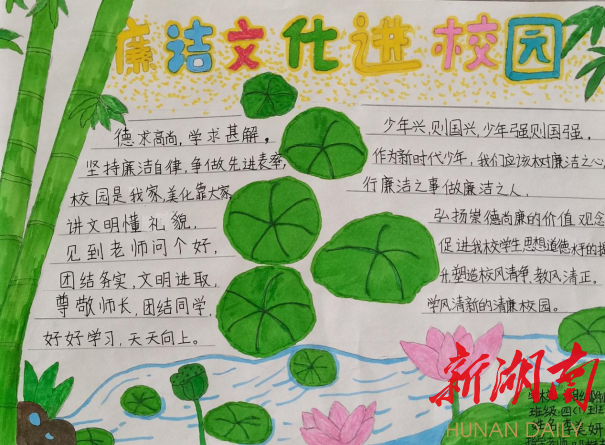 廉洁文化进校园
德求高尚，学求甚解。
坚持廉洁自律，争做先进表率，
校园是我家，美化靠大家，
讲文明懂礼貌，
见到老师问个好，
团结务实，文明进取，
尊敬师长，团结同学，
好好学习，天天向上。
少年兴，则国兴，少年强则国强，
作为新时代少年，我们应该树廉洁之心，
行廉洁之事做廉洁之人，
弘扬崇德尚廉的价值观念
促进我校学生思想道德水平的提
塑造校风清净，教风清正。
学风清新的清廉校园。
新湖南
HUNAN DAILY
学校
班级：四